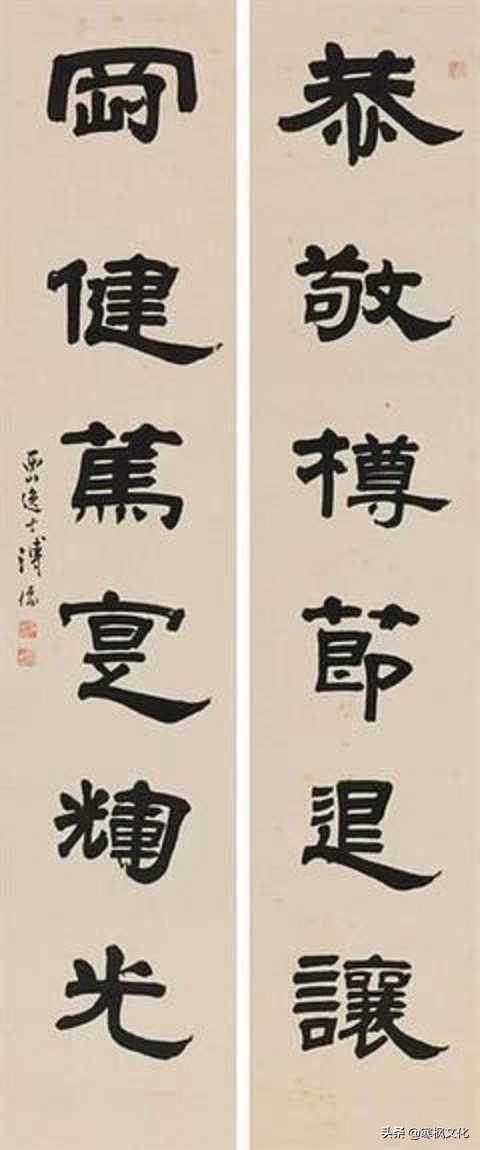 恭敬樽節退讓
剛健篤寔輝光
西山逸士溥儒
头条 @寒枫文化